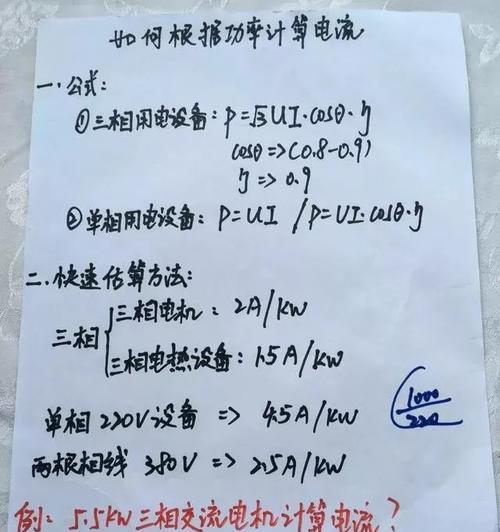 如何根据功率计算电流
一.公式:
①三相用电设备: P=√3UI·cosθ·η
cosθ=>(0.8-0.9)
η=>0.9
②单相用电设备: P=UI / P=UI·cosθ·η
二.快速估算方法:
三相 { 三相电机: 2A/KW
三相电热设备: 1.5A/KW
单相220V设备 => 4.5A/KW
(1000/220
两根相线 380V => 2.5A/KW
例: 5.5KW三相交流电机计算电流?